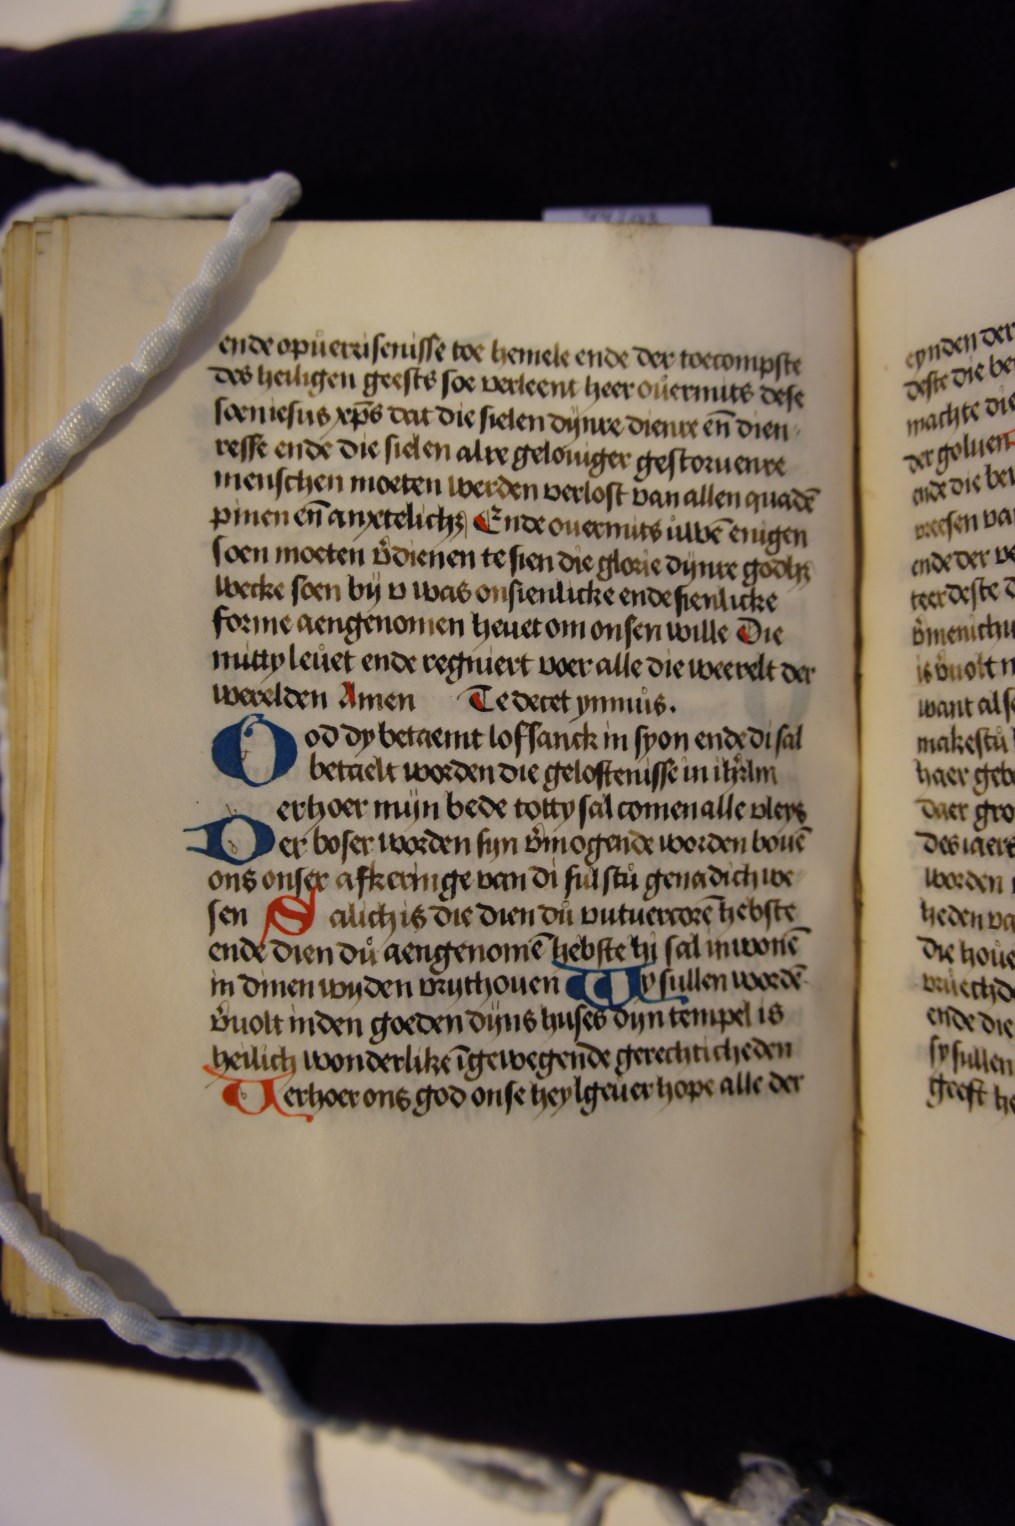 ende opu̾errisenisse toe hemele ende der toecompste
des heiligen geests soe verleent heer ou̾ermits dese
soen iesus xp̄s dat die sielen dynre dienre en̄ dien
resse ende die sielen alre geloviger gestoruenre
menschen moeten werden verlost van allen quadē
pinen en̄ anxtelich Ende ouermits uwē enigen
soen moeten v̾dienen te sien die glorie dynre godh
welke soen bij v was onsienlicke ende sienlicke
forme aengenomen heuet om onsen wille Die
mitty leuet ende regniert voer alle die weerelt der
werelden Amen Te decet ymnus.
God dy betaemt loffsanck in syon ende di sal
betaelt worden die geloftenisse in ihr̄lm
Verhoer mijn bede totty sal comen alle vleys
Der boser worden syn v̾mogende worden bouē
ons onser afkeringe van di sulstu genadich we
sen Salich is die dien du wtuercorē hebste
ende dien du aengenomē hebste hi sal in wonē
in dinen wyden vrythouen Wy sullen wordē
v̾uolt in den goeden dijns huses dyn tempel is
heilich wonderlike ī gewegende gerechticheden
Verhoer ons god onse heylgeuer hope alle der
eynden der
deste die be
machte die
der goluen
ende die bew
vreesen va
ende der ve
teerdeste d
v̾menichu
is v̾uolt m
want alse
makestu
haer geb
daer gro
des iaers
worden
heden va
die houe
vruechd
ende die
sy sullen
geeft he